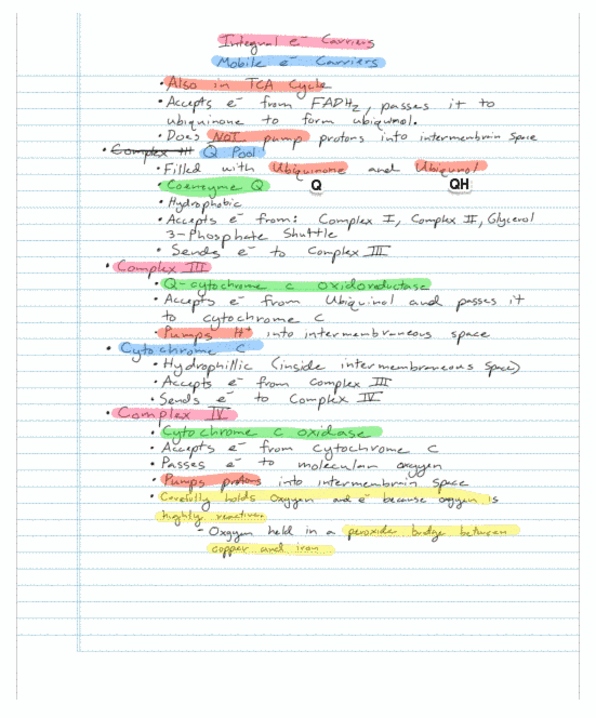 Integral e⁻ Carriers
Mobile e⁻ Carriers
• Also in TCA Cycle
• Accepts e⁻ from FADH₂, passes it to
ubiquinone to form ubiquinol.
• Does NOT pump protons into intermembrin space
• Complex III Q Pool
• Filled with Ubiquinone and Ubiquinol
• Coenzyme Q Q QH
• Hydrophobic
• Accepts e⁻ from: Complex I, Complex II, Glycerol
3-Phosphate Shuttle
• Sends e⁻ to Complex III
• Complex III
• Q-cytochrome c oxidoreductase
• Accepts e⁻ from Ubiquinol and passes it
to cytochrome C
• Pumps H⁺ into intermembraneous space
• Cytochrome C
• Hydrophillic (inside intermembraneous space)
• Accepts e⁻ from Complex III
• Sends e⁻ to Complex IV
• Complex IV
• Cytochrome C oxidase
• Accepts e⁻ from Cytochrome C
• Passes e⁻ to molecular oxygen
• Pumps protons into intermembrain space
• Carefully holds Oxygen and e⁻ because oxygen is
highly reactive.
- Oxygen held in a peroxide bridge between
copper and iron